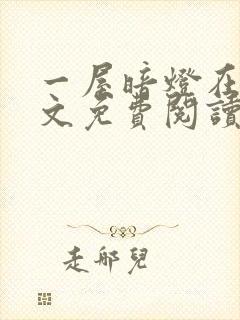 一屋暗燈在
文免費閱讀
走邨兒